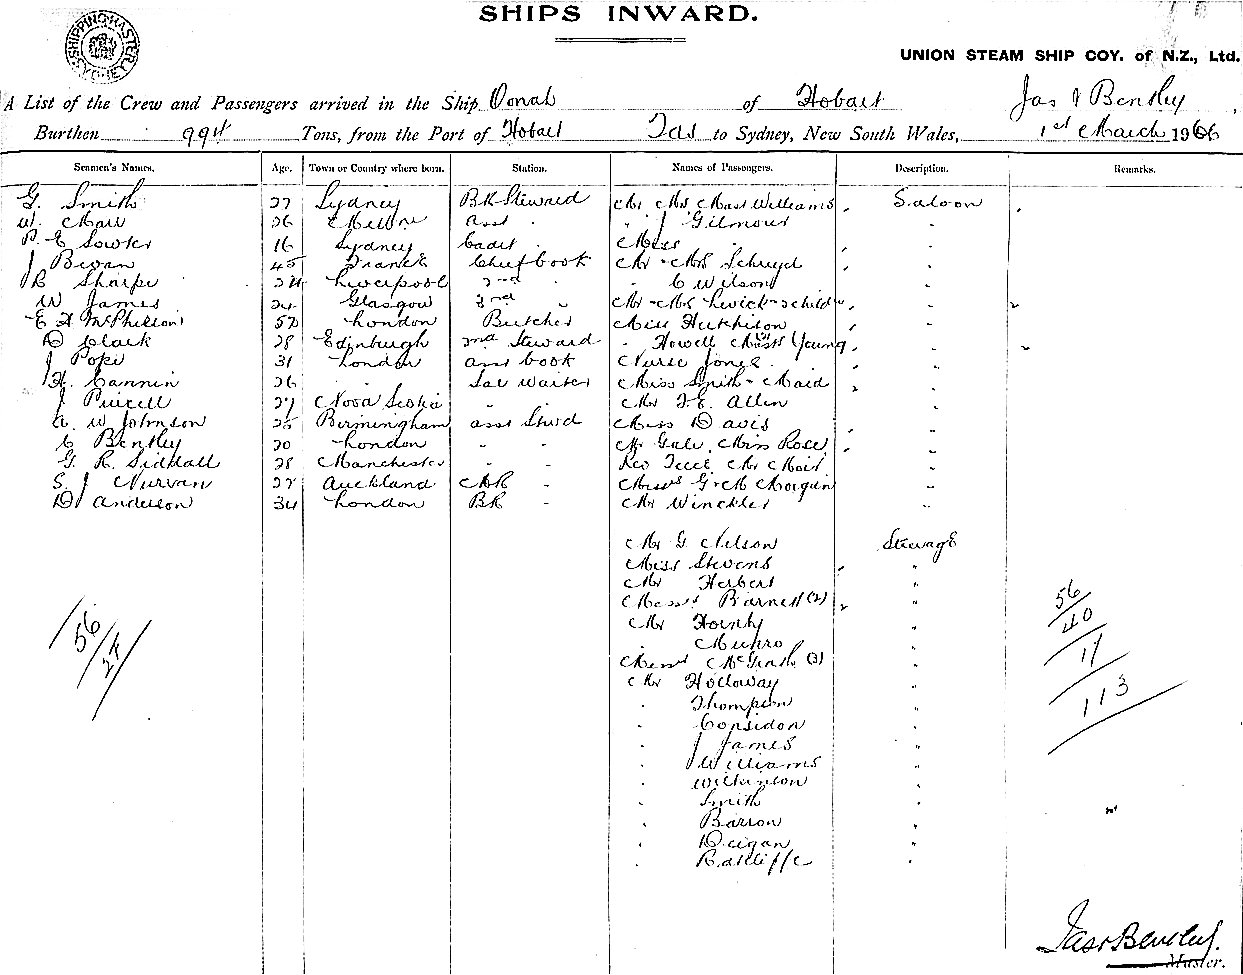 SHIPS INWARD.
SHIPPING MASTER SYDNEY
UNION STEAM SHIP COY. of N.Z., Ltd.
A List of the Crew and Passengers arrived in the Ship Oonah of Hobart Jas Bentley
Burthen 994 Tons, from the Port of Hobart Tas to Sydney, New South Wales, 1st March 1906
Seamen's Names. Age. Town or Country where born. Station. Names of Passengers. Description. Remarks.
G. Smith 27 Sydney Bk Steward Mr Mrs Mast Williams Saloon
W. 26 Melbne asst " J Gilmour "
E Sowter 16 Sydney Cadet Miss " "
J Bevan 45 France Chief Cook Mr & Mrs "
R Sharpe 24 Liverpool 2nd " " C Wilson "
W James 24 Glasgow 3rd " Mr & Mrs "
E A McPherson 52 London Butcher Miss Hutchison "
D Clark 28 Edinburgh 2nd Steward " Howell Young "
J Pope 31 London asst Cook Nurse Jones "
H. Cannin 26 " Sal Waiter Miss Smith & Maid "
J Purcell 27 Nova Scotia " Mr F. E. Allen "
A. W Johnson 25 Birmingham asst Stwd Miss Davis "
C Bentley 20 London " " Mr Gale, Miss Rose "
G. R. Siddall 28 Manchester " " Rev Mr "
S. J Nurvan 27 Auckland " Misses G & M Morgan "
D Anderson 34 London BR " Mr Winckler "
Mr G Nelson Steerage
Miss Stevens "
Mr Herbert "
Messrs Barnett (2) "
Mr "
" Munro "
Messrs McGrath (3) "
Mr Holloway "
" Thompson "
" Considon "
" J James "
" W Williams "
" Wilkinson "
" Smith "
" Barron "
" Deigan "
" Ratcliffe "
56
24
56
40
17
113
Jas Bentley
Master.